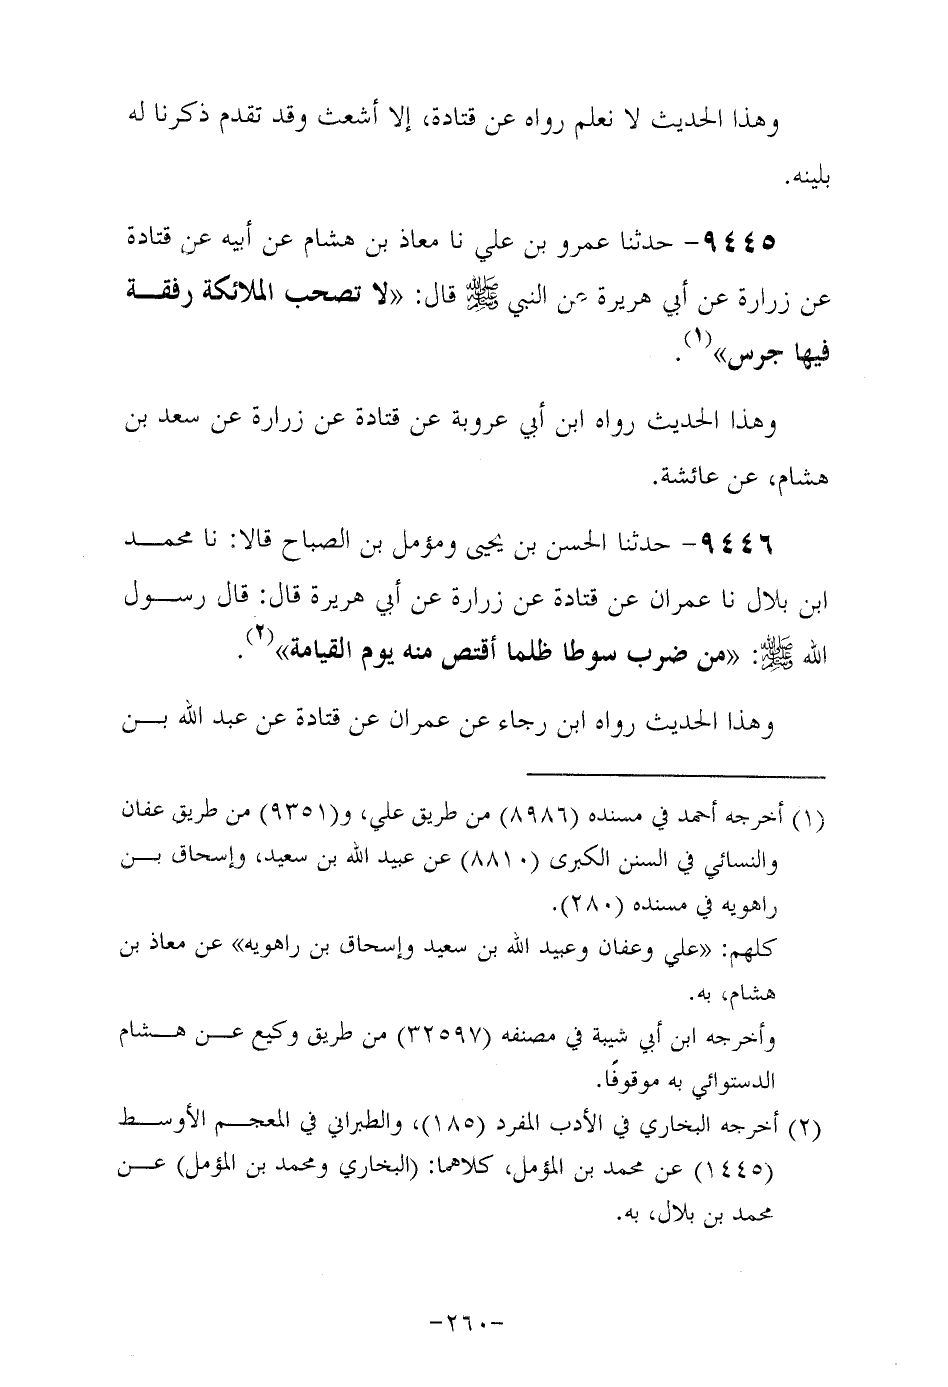 وهذا الحديث لا نعلم رواه عن قتادة، إلا أشعث وقد تقدم ذكرنا له
بلينه.
٩٤٤٥- حدثنا عمرو بن علي نا معاذ بن هشام عن أبيه عن قتادة
عن زرارة عن أبي هريرة عن النبي ﷺ قال: «لا تصحب الملائكة رفقة
فيها جرس»(١).
وهذا الحديث رواه ابن أبي عروبة عن قتادة عن زرارة عن سعد بن
هشام، عن عائشة.
٩٤٤٦- حدثنا الحسن بن يحيى ومؤمل بن الصباح قالا: نا محمد
ابن بلال نا عمران عن قتادة عن زرارة عن أبي هريرة قال: قال رسول
الله ﷺ: «من ضرب سوطا ظلما أقتص منه يوم القيامة»(٢).
وهذا الحديث رواه ابن رجاء عن عمران عن قتادة عن عبد الله بن
(١) أخرجه أحمد في مسنده (٨٩٨٦) من طريق علي، و(٩٣٥١) من طريق عفان
والنسائي في السنن الكبرى (٨٨١٠) عن عبيد الله بن سعيد، وإسحاق بن
راهويه في مسنده (٢٨٠).
كلهم: «علي وعفان وعبيد الله بن سعيد وإسحاق بن راهويه» عن معاذ بن
هشام، به.
وأخرجه ابن أبي شيبة في مصنفه (٣٢٥٩٧) من طريق وكيع عن هشام
الدستوائي به موقوفًا.
(٢) أخرجه البخاري في الأدب المفرد (١٨٥)، والطبراني في المعجم الأوسط
(١٤٤٥) عن محمد بن المؤمل، كلاهما: (البخاري ومحمد بن المؤمل) عن
محمد بن بلال، به.
-٢٦٠-